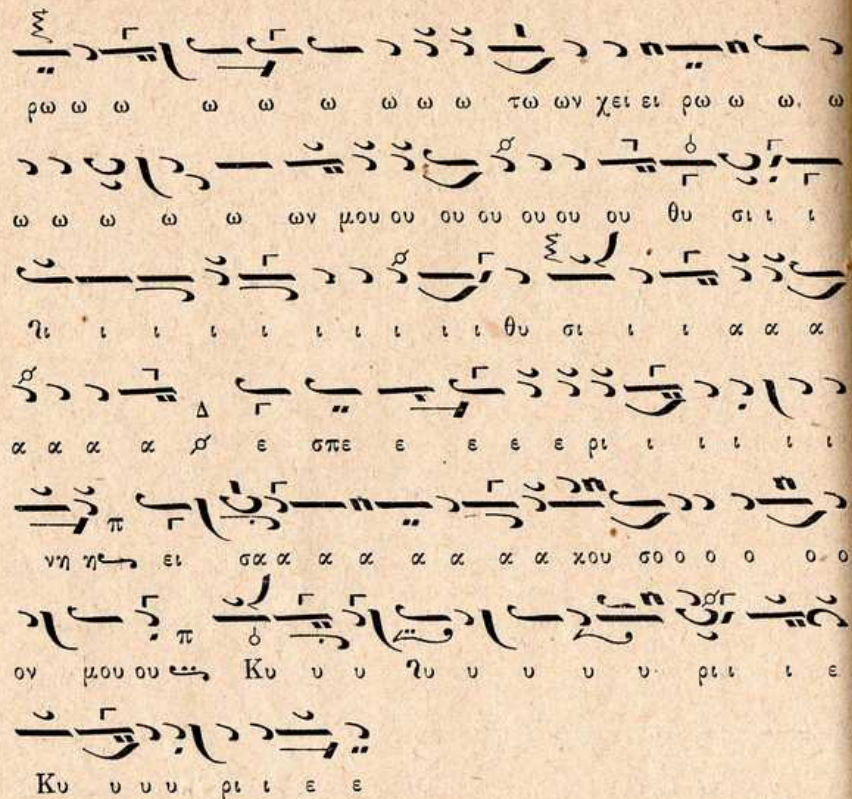 ρω ω ω ω ω ω ω ω ω τω ων χει ει ρω ω ω. ω
ω ω ω ω ω ων μου ου ου ου ου ου ου θυ σι ι ι
λι ι ι ι ι ι ι ι ι ι θυ σι ι ι α α α
α α α α Δ ε σπε ε ε ε ε ρι ι ι ι ι ι
νη η π ει σα α α α α α α κου σο ο ο ο ο ο
ον μου ου π Κυ υ υ λυ υ υ υ υ ρι ι ι ε
Κυ υ υ υ ρι ι ε ε